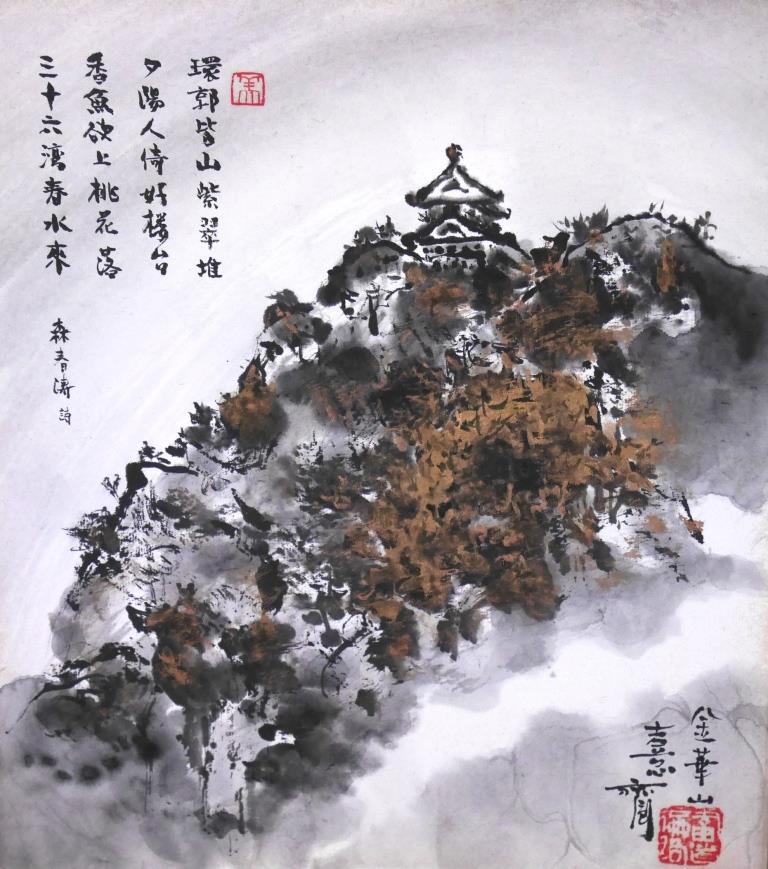 環郭皆山紫翠堆
夕陽人倚好楼台
香魚欲上桃花落
三十六湾春水來
森春濤 詩
金華山